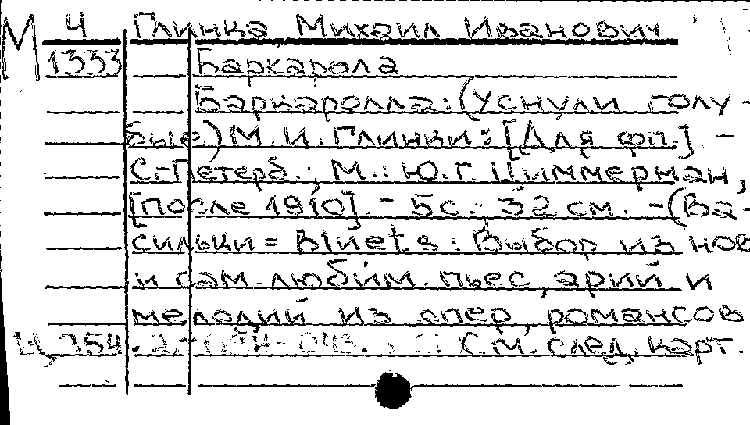 М Ц Глинка, Михаил Иванович
1333 Баркарола
Баркаролла: (Уснули голу-
бые) М. И. Глинки: [Для фп.] -
С.-Петерб., М.: Ю. Г. Циммерман,
[после 1910]. - 5 с.; 32 см. - (Ва-
сильки = Bluets: Выбор из нов
и сам. любим. пьес, арий и
мелодий из опер, романсов
См. след. карт.